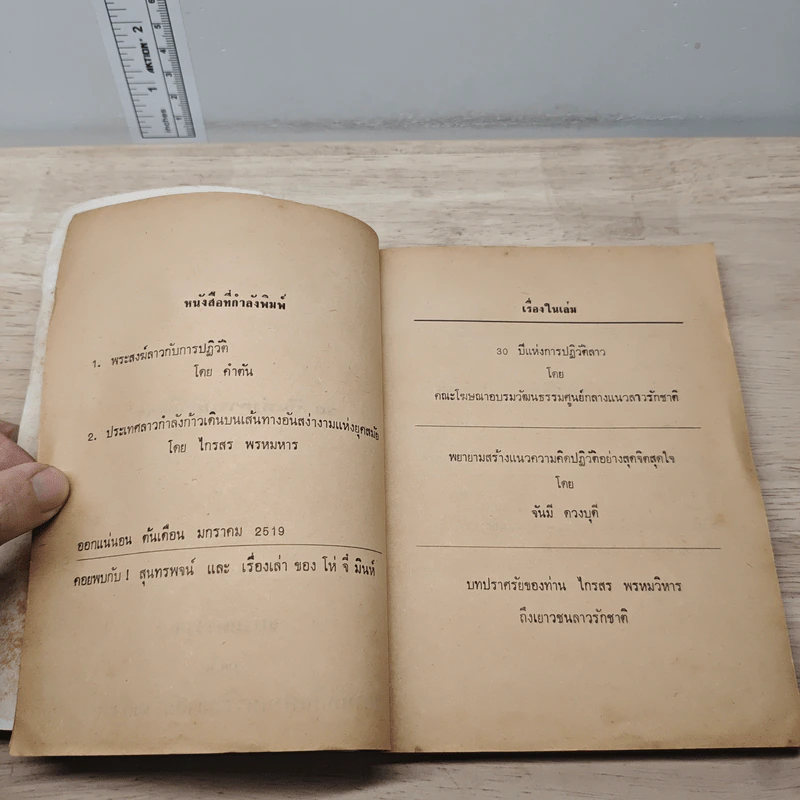 2
AKTION
1
inches
หนังสือที่กำลังพิมพ์
1. พระสงฆ์ลาวกับการปฏิวัติ
โดย คำตัน
2. ประเทศลาวกำลังก้าวเดินบนเส้นทางอันสง่างามแห่งยุคสมัย
โดย ไกรสร พรหมหาร
ออกแน่นอน ต้นเดือน มกราคม 2519
คอยพบกับ ! สุนทรพจน์ และ เรื่องเล่า ของ โห่ จี่ มินห์
เรื่องในเล่ม
30 ปีแห่งการปฏิวัติลาว
โดย
คณะโฆษณาอบรมวัฒนธรรมศูนย์กลางแนวลาวรักชาติ
พยายามสร้างแนวความคิดปฏิวัติอย่างสุดจิตสุดใจ
โดย
จันมี ดวงบุดี
บทปราศรัยของท่าน ไกรสร พรหมวิหาร
ถึงเยาวชนลาวรักชาติ